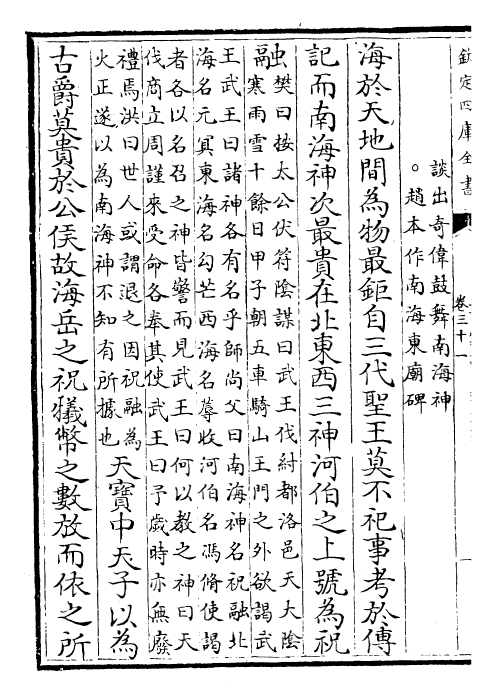 欽定四庫全書
卷三十一
談出奇偉鼓舞南海神
。趙本作南海東廟碑
海於天地間為物最鉅自三代聖王莫不祀事考於傳
記而南海神次最貴在北東西三神河伯之上號為祝
融
樊曰按太公伏符陰謀曰武王伐紂都洛邑天大陰
寒雨雪十餘日甲子朝五車騎山王門之外欲謁武
王武王曰諸神各有名乎師尚父曰南海神名祝融北
海名元冥東海名勾芒西海名蓐收河伯名馮脩使謁
者各以名召之神皆警而見武王曰何以教之神曰天
伐商立周謹來受命各奉其使武王曰予歲時亦無廢
禮焉洪曰世人或謂退之因祝融為
火正遂以為南海神不知有所據也
天寶中天子以為
古爵莫貴於公侯故海岳之祝犧幣之數放而依之所